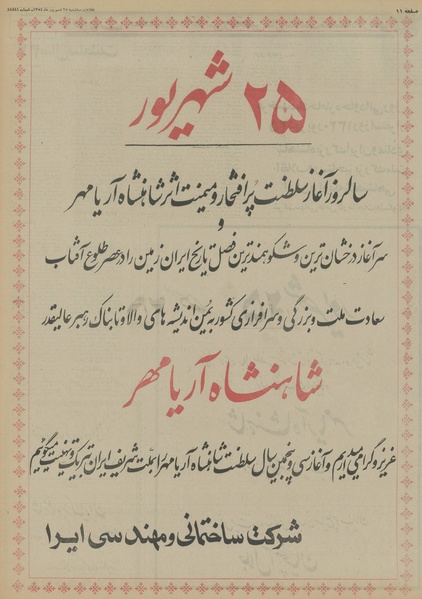 صفحه ۱۱
۲۵ شهریور
سالروز آغاز سلطنت پر افتخار و میمنت اثر شاهنشاه آریامهر
و
سرآغاز درخشان‌ترین و شکوهمندترین فصل تاریخ ایران زمین را در عصر طلوع آفتاب
سعادت ملت و بزرگی و سرافرازی کشور به یمن اندیشه‌های والا و تابناک رهبر عالیقدر
شاهنشاه آریامهر
عزیز و گرامی میداریم و آغاز سی و پنجمین سال سلطنت شاهنشاه آریامهر را بملت شریف ایران تبریک و تهنیت میگوئیم
شرکت ساختمانی و مهندسی ایرا